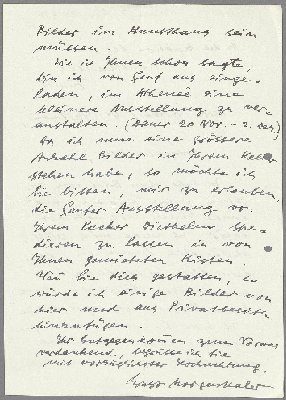 Bilder im Kunsthaus sein
müssten.
Wie ich Ihnen schon sagte
bin ich von Genf aus einge-
laden, im Athénée eine
kleinere Ausstellung zu ver-
anstalten. (Dauer 20 Nov. - 2. Dez.)
Da ich nun eine grössere
Anzahl Bilder in Ihrem Kel
stehen habe, so möchte ich
Sie bitten, mir zu erlauben,
die Genfer-Ausstellung von
Ihrem Packer Diethelm spe-
dieren zu lassen in von
Ihnen gemieteten Kisten.
Wenn Sie dies gestatten, so
würde ich einige Bilder von
hier und aus Privatbesitz
hinzufügen.
Ihr Entgegenkommen zum Voraus
verdankend, begrüsse ich Sie
mit vorzüglicher Hochachtung.
Ernst Morgenthaler